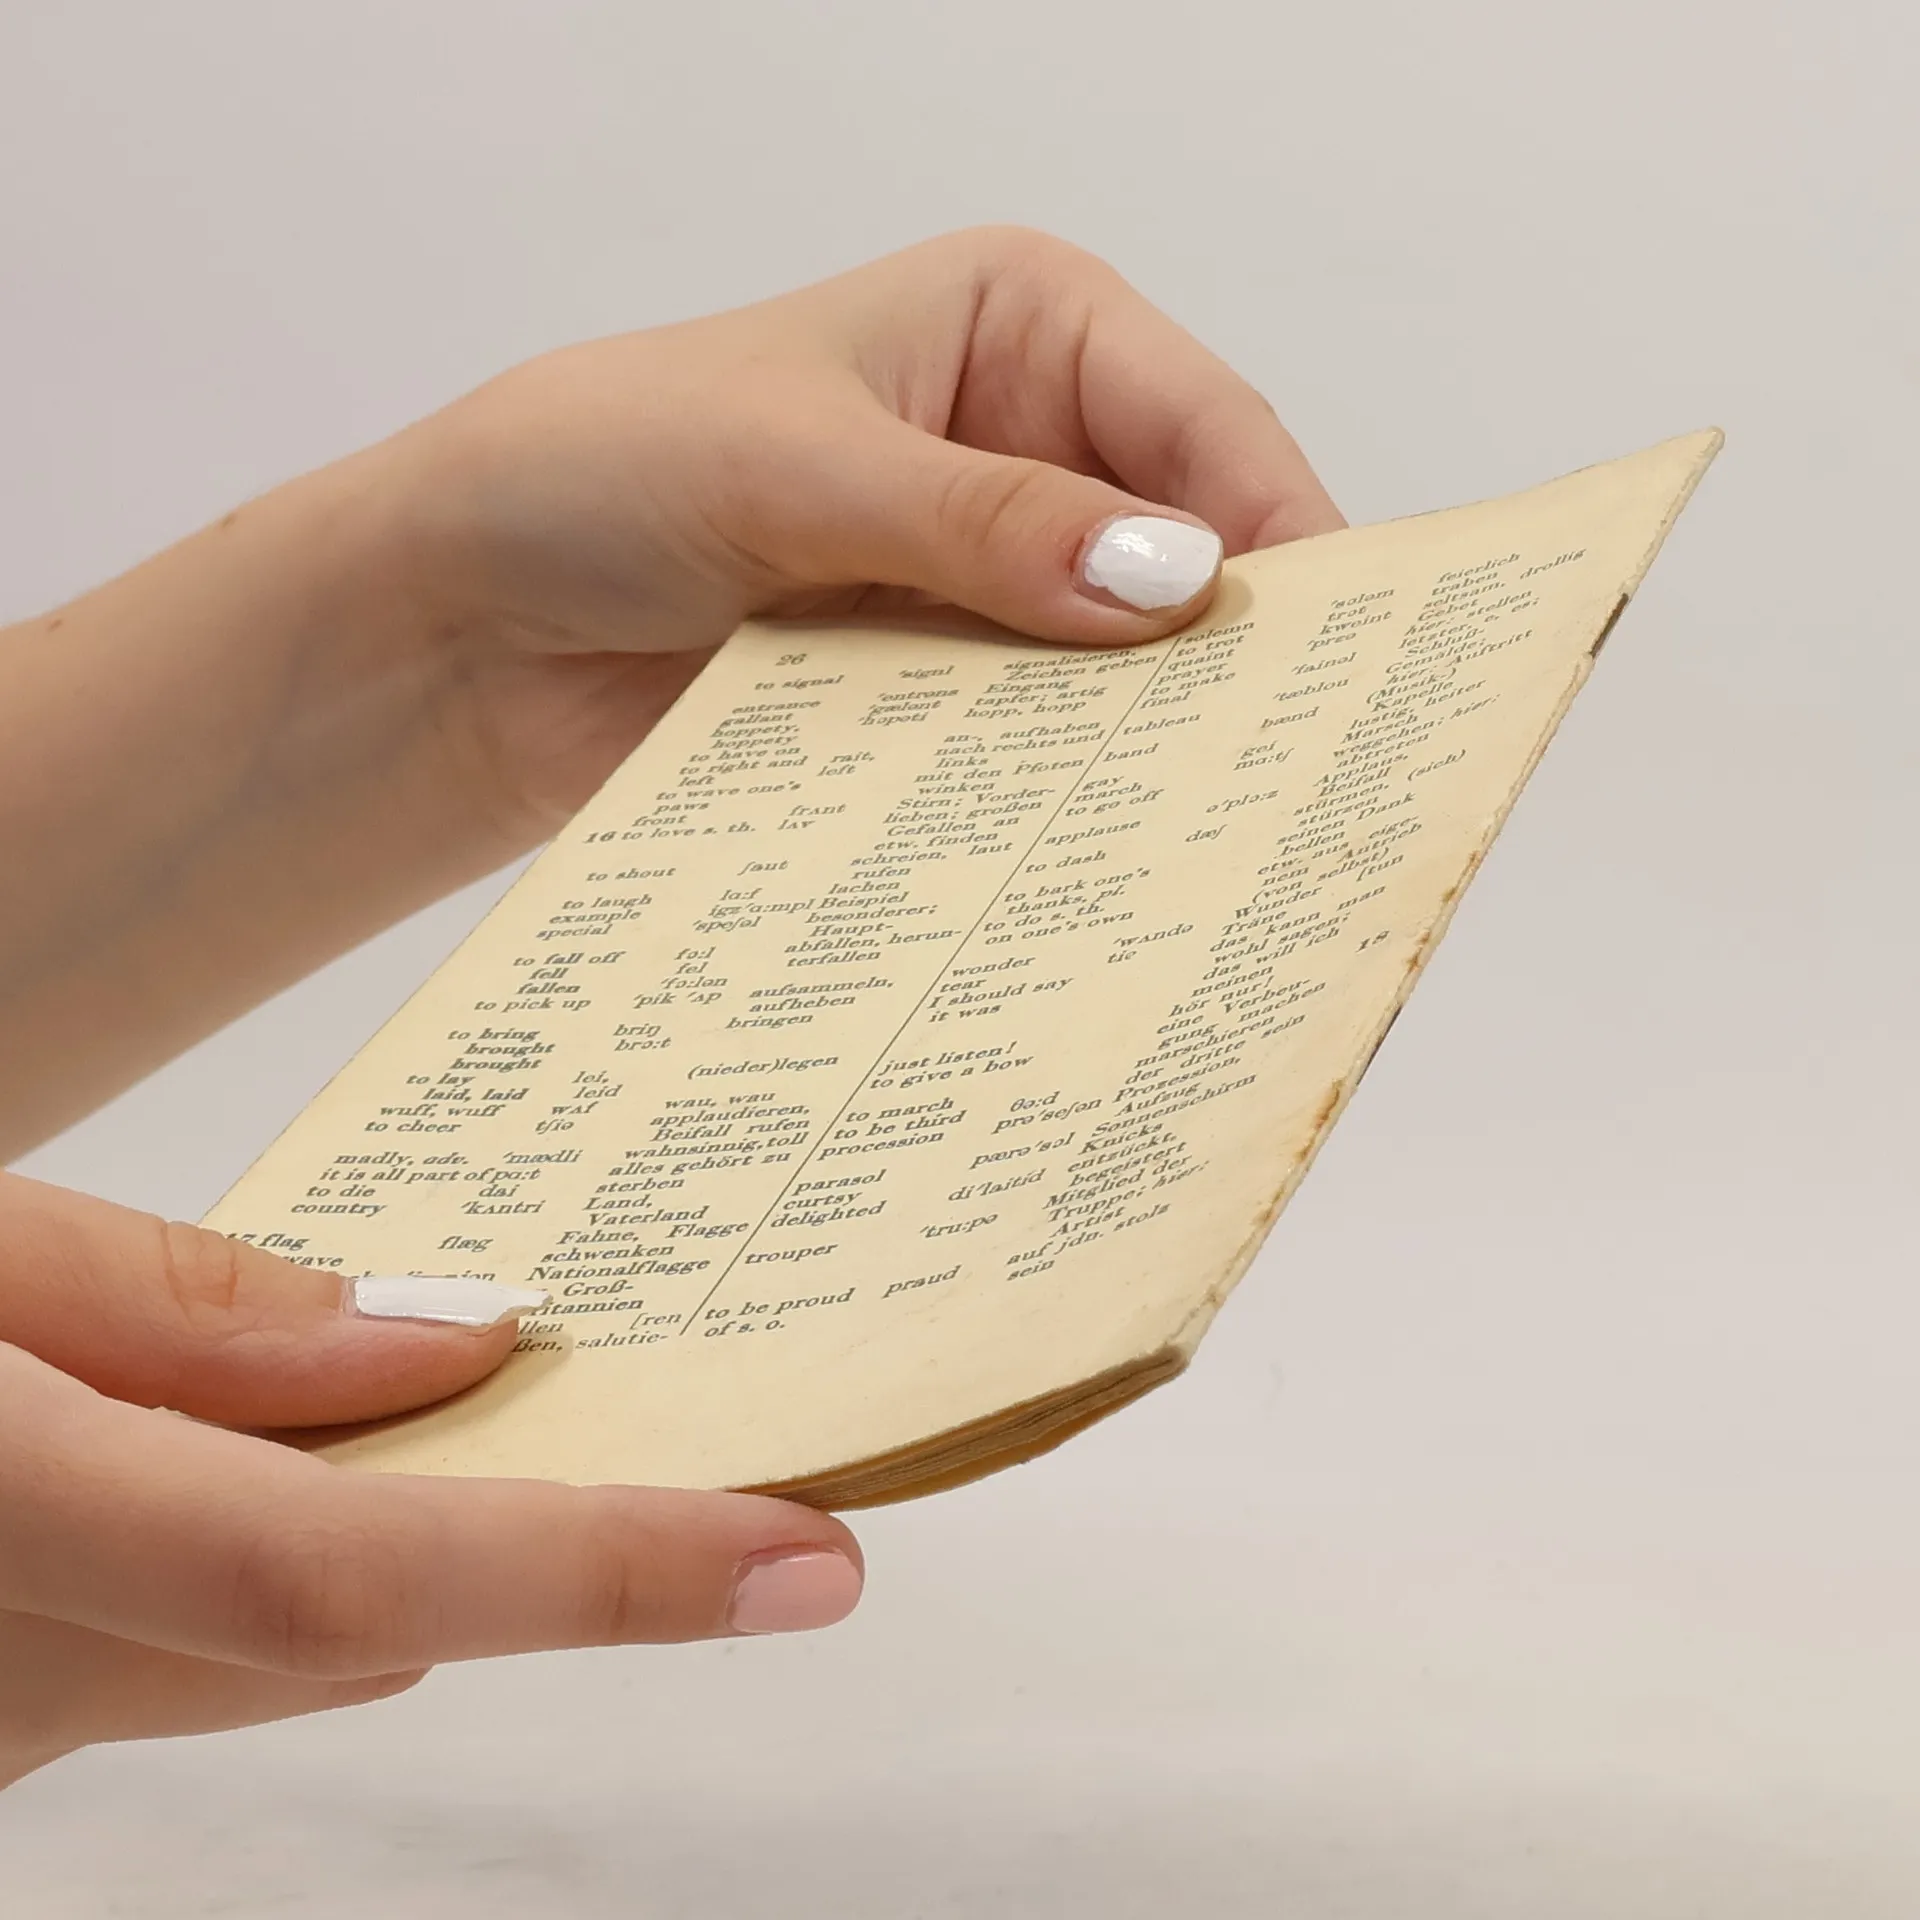 26
to signal ˈsignl signalisieren,
Zeichen geben
entrance ˈentrəns Eingang
gallant ˈgælənt tapfer; artig
hoppety, ˈhɔpəti hopp, hopp
hoppety
to have on an-, aufhaben
to right and rait, nach rechts und
left left links
to wave one's mit den Pfoten
paws winken
front frʌnt Stirn; Vorder-
16 to love s. th. lʌv lieben; großen
Gefallen an
etw. finden
to shout ʃaut schreien, laut
rufen
to laugh lɑ:f lachen
example igzˈɑ:mpl Beispiel
special ˈspeʃəl besonderer;
Haupt-
to fall off fɔ:l abfallen, herun-
fell fel terfallen
fallen ˈfɔ:lən
to pick up ˈpik ˈʌp aufsammeln,
aufheben
to bring briŋ bringen
brought brɔ:t
brought
to lay lei, (nieder)legen
laid, laid leid
wuff, wuff wʌf wau, wau
to cheer tʃiə applaudieren,
Beifall rufen
madly, adv. ˈmædli wahnsinnig, toll
it is all part of pɑ:t alles gehört zu
to die dai sterben
country ˈkʌntri Land,
Vaterland
17 flag flæg Fahne, Flagge
wave schwenken
Nationalflagge
Groß-
ritannien
llen [ren
ßen, salutie-
solemn ˈsɔləm feierlich
to trot trɔt traben
quaint kweint seltsam, drollig
prayer ˈprɛə Gebet
to make hier: stellen
final ˈfainəl letzter, e, es;
Schluß-
tableau ˈtæblou Gemälde;
hier: Auftritt
band bænd (Musik-)
Kapelle
gay gei lustig, heiter
march mɑ:tʃ Marsch
to go off weggehen; hier:
abtreten
applause əˈplɔ:z Applaus,
Beifall
to dash dæʃ stürmen, (sich)
stürzen
to bark one's seinen Dank
thanks, pl. bellen
to do s. th. etw. aus eige-
on one's own nem Antrieb
(von selbst) [tun
wonder ˈwʌndə Wunder
tear tiə Träne
I should say das kann man
it was wohl sagen; 18
das will ich
meinen
just listen! hör nur!
to give a bow eine Verbeu-
gung machen
to march marschieren
to be third θə:d der dritte sein
procession prəˈseʃən Prozession,
Aufzug
parasol pærəˈsɔl Sonnenschirm
curtsy Knicks
delighted diˈlaitid entzückt,
begeistert
trouper ˈtru:pə Mitglied der
Truppe; hier:
Artist
to be proud praud auf jdn. stolz
of s. o. sein